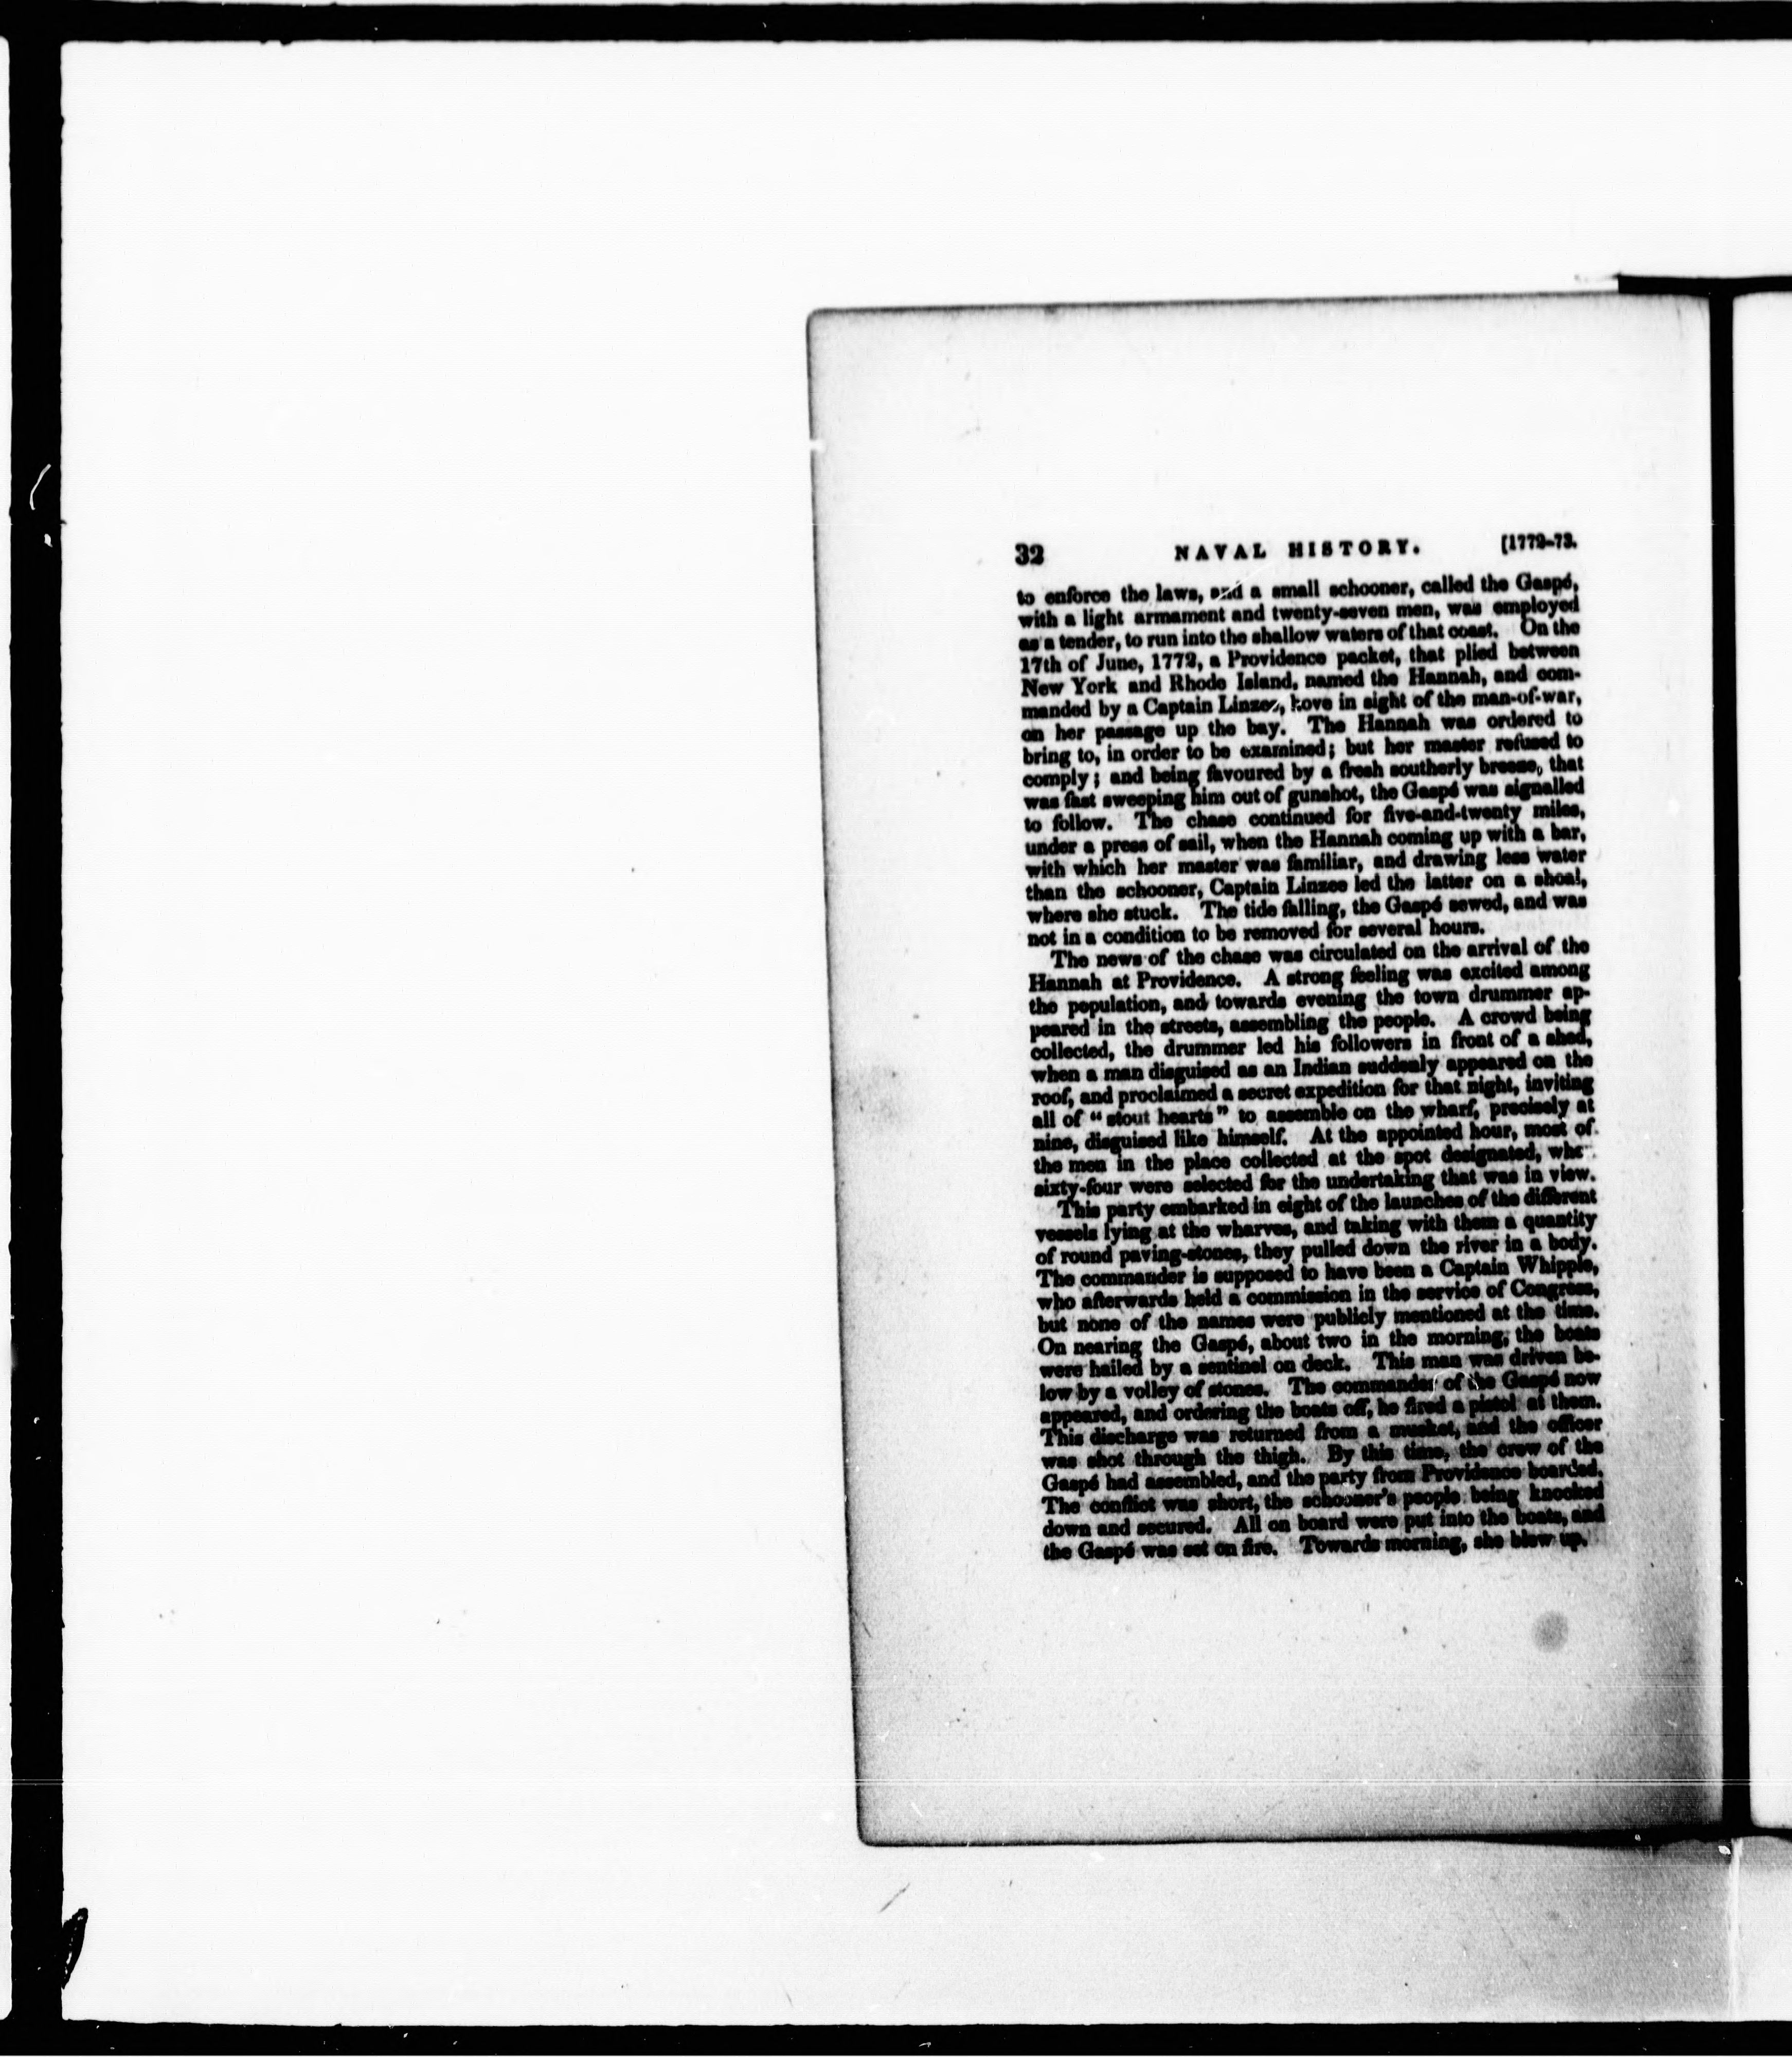 32 NAVAL HISTORY. [1772-73.
to enforce the laws, and a small schooner, called the Gaspé,
with a light armament and twenty-seven men, was employed
as a tender, to run into the shallow waters of that coast. On the
17th of June, 1772, a Providence packet, that plied between
New York and Rhode Island, named the Hannah, and com-
manded by a Captain Linzee, hove in sight of the man-of-war,
on her passage up the bay. The Hannah was ordered to
bring to, in order to be examined; but her master refused to
comply; and being favoured by a fresh southerly breeze, that
was fast sweeping him out of gunshot, the Gaspé was signalled
to follow. The chase continued for five-and-twenty miles,
under a press of sail, when the Hannah coming up with a bar,
with which her master was familiar, and drawing less water
than the schooner, Captain Linzee led the latter on a shoal,
where she stuck. The tide falling, the Gaspé sewed, and was
not in a condition to be removed for several hours.
The news of the chase was circulated on the arrival of the
Hannah at Providence. A strong feeling was excited among
the population, and towards evening the town drummer ap-
peared in the streets, assembling the people. A crowd being
collected, the drummer led his followers in front of a shed,
when a man disguised as an Indian suddenly appeared on the
roof, and proclaimed a secret expedition for that night, inviting
all of "stout hearts" to assemble on the wharf, precisely at
nine, disguised like himself. At the appointed hour, most of
the men in the place collected at the spot designated,
sixty-four were selected for the undertaking that was in view.
This party embarked in eight of the launches of the different
vessels lying at the wharves, and taking with them a quantity
of round paving-stones, they pulled down the river in a body.
The commander is supposed to have been a Captain Whipple,
who afterwards held a commission in the service of Congress,
but none of the names were publicly mentioned at the time.
On nearing the Gaspé, about two in the morning, the boats
were hailed by a sentinel on deck. This man was driven be-
low by a volley of stones. The commander of the Gaspé now
appeared, and ordering the boats off, he fired a pistol at them.
This discharge was returned from a musket, and the officer
was shot through the thigh. By this time, the crew of the
Gaspé had assembled, and the party from Providence boarded.
The conflict was short, the schooner's people being knocked
down and secured. All on board were put into the boats, and
the Gaspé was set on fire. Towards morning, she blew up.